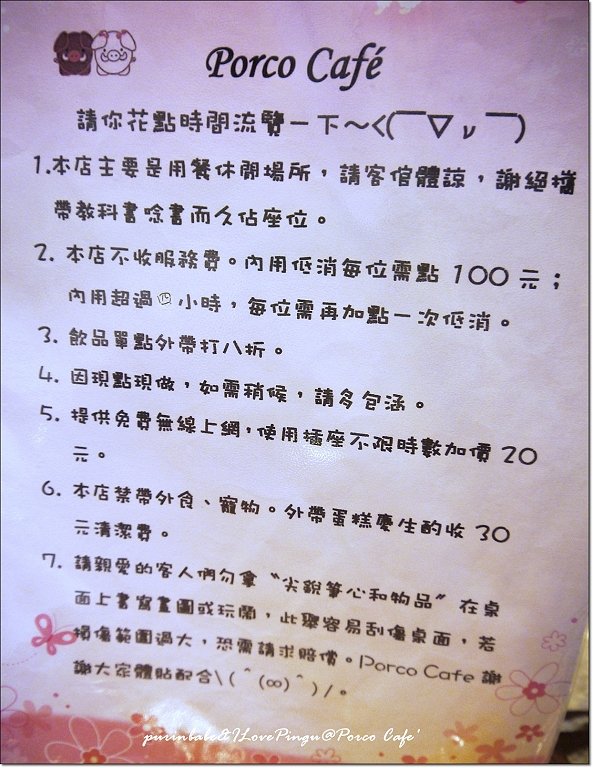 Porco Café
請你花點時間流覽一下～<(￣▽ν￣)
1.本店主要是用餐休閒場所，請客倌體諒，謝絕攜
帶教科書唸書而久佔座位。
2. 本店不收服務費。內用低消每位需點 100 元；
內用超過四小時，每位需再加點一次低消。
3. 飲品單點外帶打八折。
4. 因現點現做，如需稍候，請多包涵。
5. 提供免費無線上網，使用插座不限時數加價 20
元。
6. 本店禁帶外食、寵物。外帶蛋糕慶生酌收 30
元清潔費。
7. 請親愛的客人們勿拿〝尖銳筆心和物品〞在桌
面上書寫畫圖或玩鬧，此舉容易刮傷桌面，若
損傷範圍過大，恐需請求賠償。Porco Cafe 謝
謝大家體貼配合\(＾(∞)＾)/。
purintale&ILovePingu@Porco Cafe'